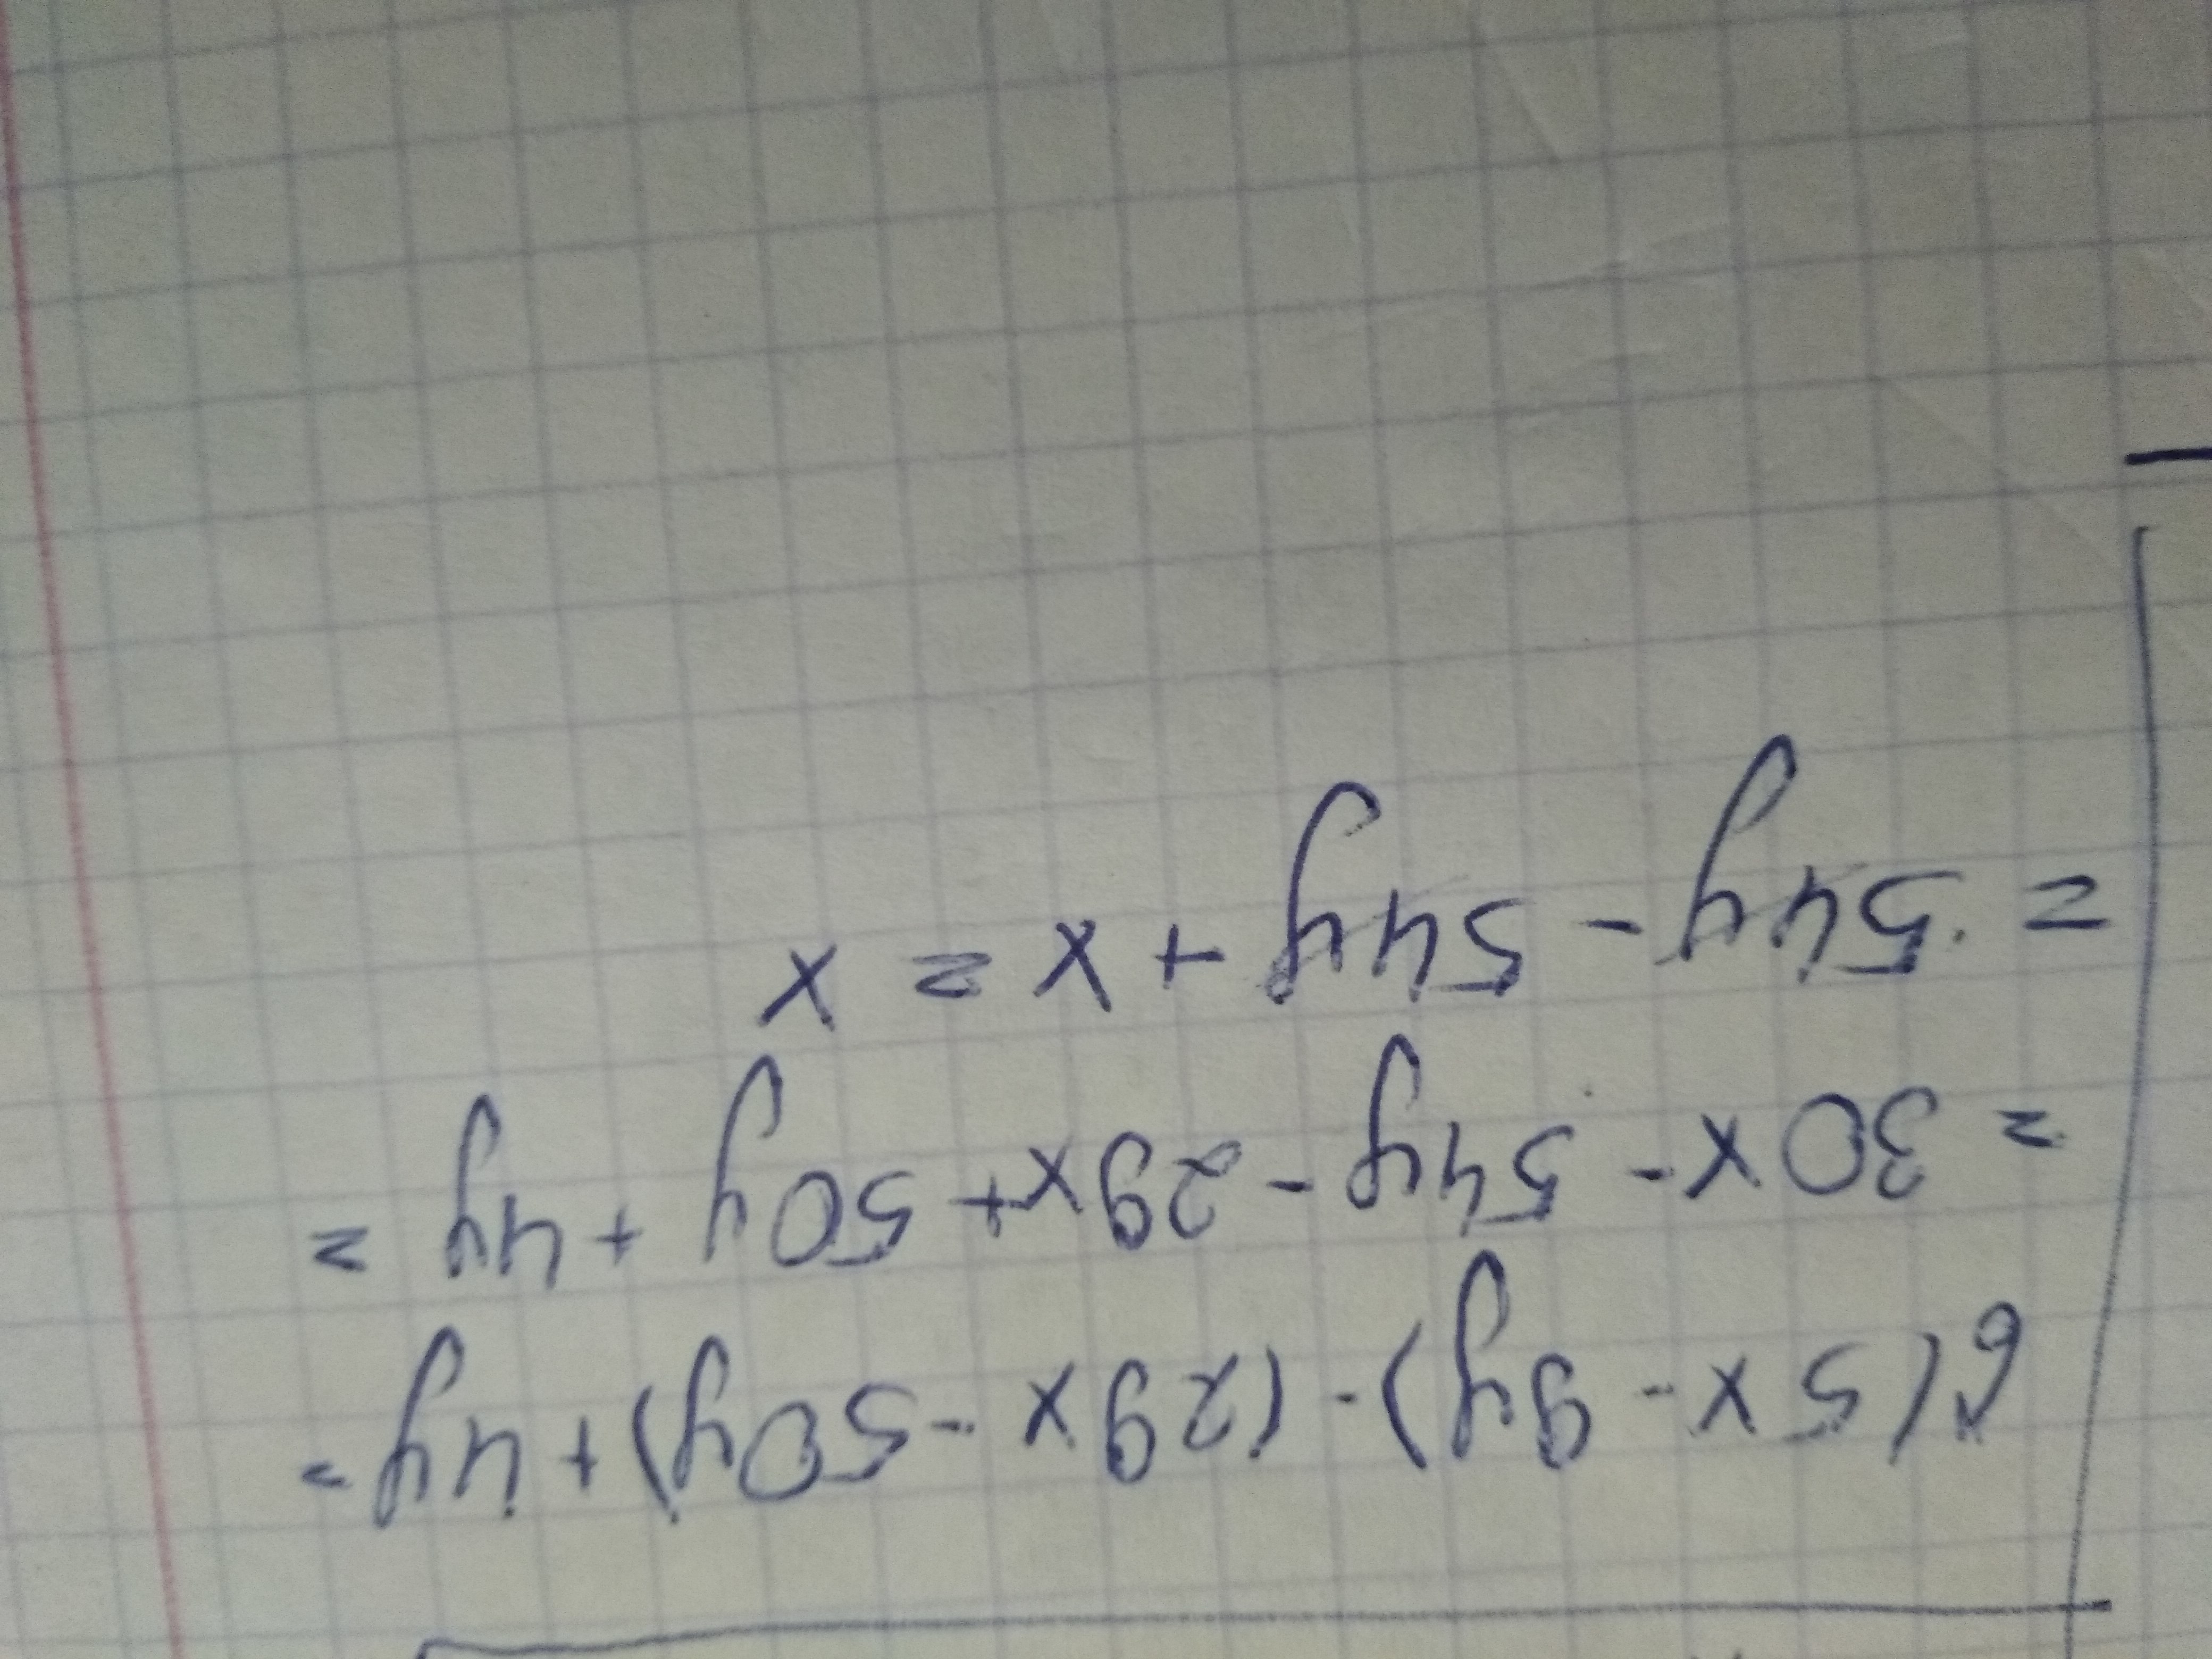 6(5x-9y)-(29x-50y)+4y=
=30x-54y-29x+50y+4y=
=54y-54y+x=x